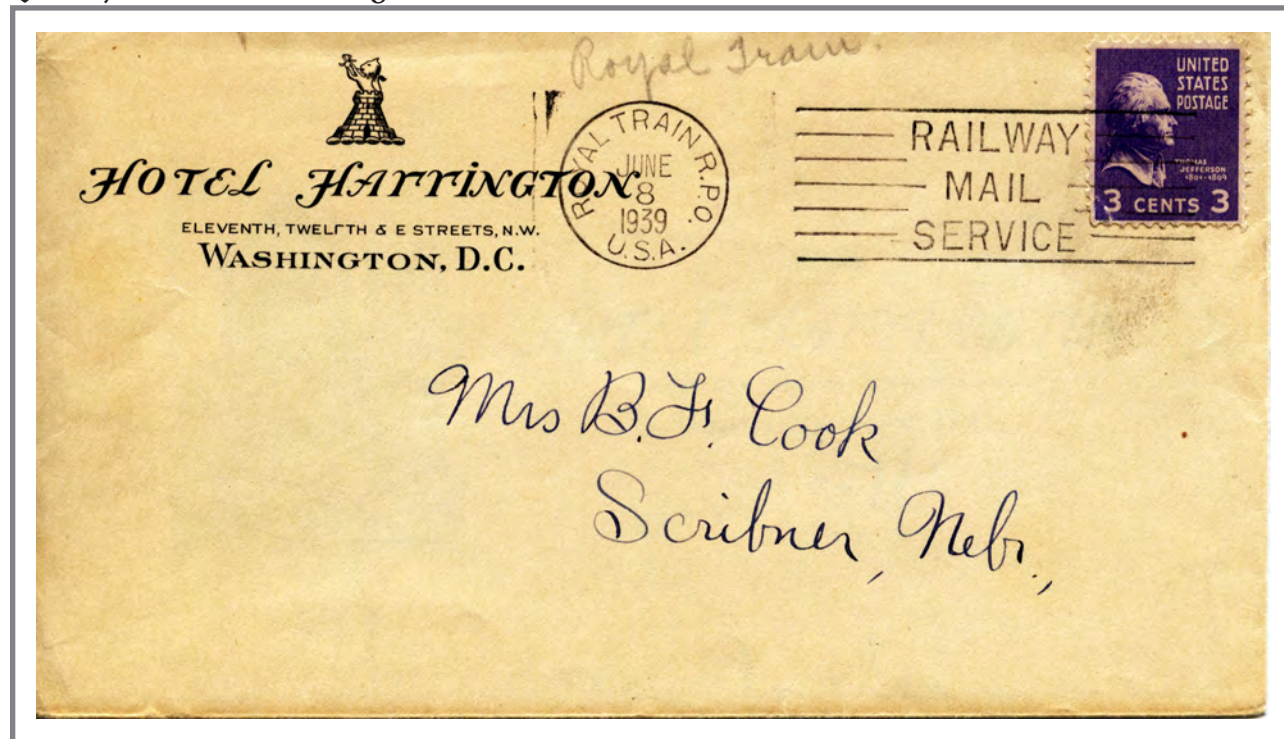 Royal Train.
HOTEL HARRINGTON
ELEVENTH, TWELFTH & E STREETS, N.W.
WASHINGTON, D.C.
ROYAL TRAIN R.P.O.
JUNE
8
1939
U.S.A.
RAILWAY
MAIL
SERVICE
UNITED
STATES
POSTAGE
THOMAS
JEFFERSON
1801-1809
3 CENTS 3
Mrs B. F. Cook
Scribner, Nebr.,